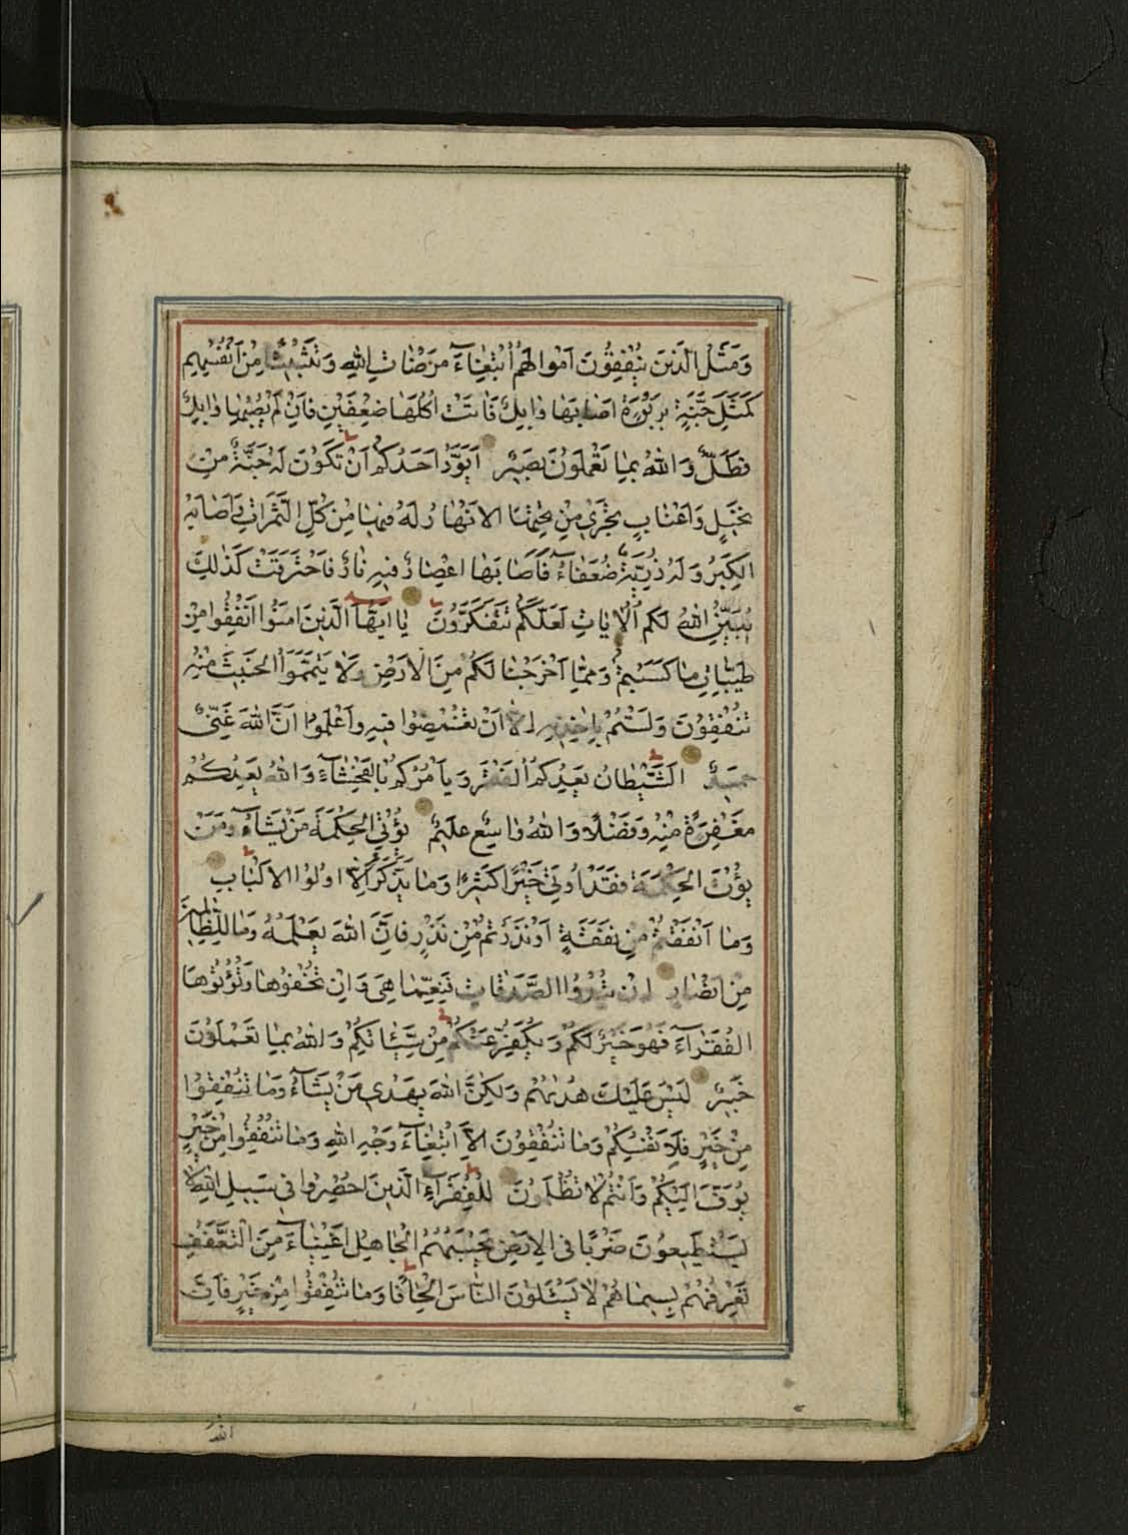 وَمَثَلُ الَّذينَ يُنْفِقُونَ اَمْوالَهُمُ ابْتِغاءَ مَرْضاتِ اللّٰهِ وَتَثْبيتًا مِنْ اَنْفُسِهِمْ
كَمَثَلِ جَنَّةٍ بِرَبْوَةٍ اَصابَها وابِلٌ فَاٰتَتْ اُكُلَها ضِعْفَيْنِ فَاِنْ لَمْ يُصِبْها وابِلٌ
فَطَلٌّ وَاللّٰهُ بِما تَعْمَلُونَ بَصيرٌ اَيَوَدُّ اَحَدُكُمْ اَنْ تَكُونَ لَهُ جَنَّةٌ مِنْ
نَخيلٍ وَاَعْنابٍ تَجْري مِنْ تَحْتِهَا الاَنْهارُ لَهُ فيها مِنْ كُلِّ الثَّمَراتِ وَاَصابَهُ
الكِبَرُ وَلَهُ ذُرِّيَّةٌ ضُعَفاءُ فَاَصابَها اِعْصارٌ فيهِ نارٌ فَاحْتَرَقَتْ كَذٰلِكَ
يُبَيِّنُ اللّٰهُ لَكُمُ الْاٰياتِ لَعَلَّكُمْ تَتَفَكَّرُونَ يا اَيُّهَا الَّذينَ اٰمَنُوا اَنْفِقُوا مِنْ
طَيِّباتِ ما كَسَبْتُمْ وَمِمّا اَخْرَجْنا لَكُمْ مِنَ الْاَرْضِ وَلا تَيَمَّمُوا الخَبيثَ مِنْهُ
تُنْفِقُونَ وَلَسْتُمْ بِاٰخِذيهِ اِلّا اَنْ تُغْمِضُوا فيهِ وَاعْلَمُوا اَنَّ اللّٰهَ غَنِيٌّ
حَميدٌ اَلشَّيْطانُ يَعِدُكُمُ الْفَقْرَ وَيَأْمُرُكُمْ بِالْفَحْشاءِ وَاللّٰهُ يَعِدُكُمْ
مَغْفِرَةً مِنْهُ وَفَضْلًا وَاللّٰهُ واسِعٌ عَليمٌ يُؤْتِي الْحِكْمَةَ مَنْ يَشاءُ وَمَنْ
يُؤْتَ الْحِكْمَةَ فَقَدْ اُوتِيَ خَيْرًا كَثيرًا وَما يَذَّكَّرُ اِلّا اُولُوا الالْبابِ
وَما اَنْفَقْتُمْ مِنْ نَفَقَةٍ اَوْ نَذَرْتُمْ مِنْ نَذْرٍ فَاِنَّ اللّٰهَ يَعْلَمُهُ وَما لِلظّالِمينَ
مِنْ اَنْصارٍ اِنْ تُبْدُوا الصَّدَقاتِ فَنِعِمّا هِيَ وَاِنْ تُخْفُوها وَتُؤْتُوهَا
الْفُقَراءَ فَهُوَ خَيْرٌ لَكُمْ وَيُكَفِّرُ عَنْكُمْ مِنْ سَيِّئاتِكُمْ وَاللّٰهُ بِما تَعْمَلُونَ
خَبيرٌ لَيْسَ عَلَيْكَ هُدٰيهُمْ وَلٰكِنَّ اللّٰهَ يَهْدي مَنْ يَشاءُ وَما تُنْفِقُوا
مِنْ خَيْرٍ فَلِاَنْفُسِكُمْ وَما تُنْفِقُونَ اِلّا ابْتِغاءَ وَجْهِ اللّٰهِ وَما تُنْفِقُوا مِنْ خَيْرٍ
يُوَفَّ اِلَيْكُمْ وَاَنْتُمْ لا تُظْلَمُونَ لِلْفُقَراءِ الَّذينَ اُحْصِرُوا في سَبيلِ اللّٰهِ لا
يَسْتَطيعُونَ ضَرْبًا فِي الاَرْضِ يَحْسَبُهُمُ الْجاهِلُ اَغْنِياءَ مِنَ الْتَّعَفُّفِ
تَعْرِفُهُمْ بِسيماهُمْ لا يَسْئَلُونَ النّاسَ اِلْحافًا وَما تُنْفِقُوا مِنْ خَيْرٍ فَاِنَّ
اللّٰهَ